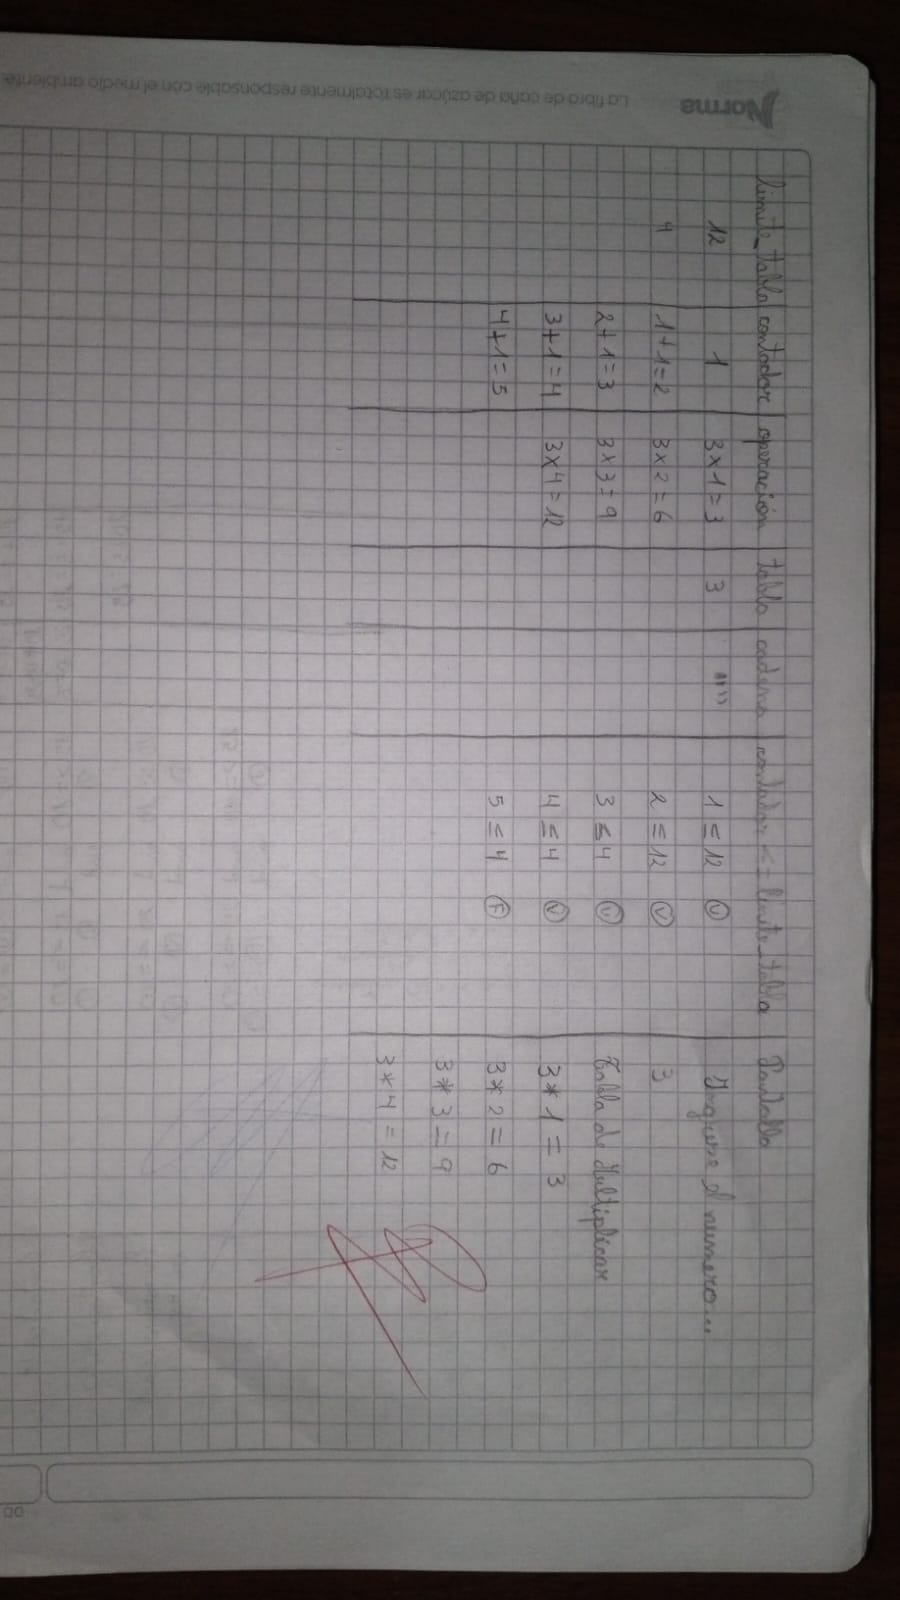 Norma La fibra de caña de azúcar es totalmente responsable con el medio ambiente.
limite_tabla contador operación tabla cadena contador <= limite_tabla Pantalla
12 1 3 x 1 = 3 3 "" 1 ≤ 12 V Ingrese el numero...
4 1+1=2 3 x 2 = 6 2 ≤ 12 V 3
2+1=3 3 x 3 = 9 3 ≤ 4 V Tabla de Multiplicar
3+1=4 3 x 4 = 12 4 ≤ 4 V 3 * 1 = 3
4+1=5 5 ≤ 4 F 3 * 2 = 6
3 * 3 = 9
3 * 4 = 12